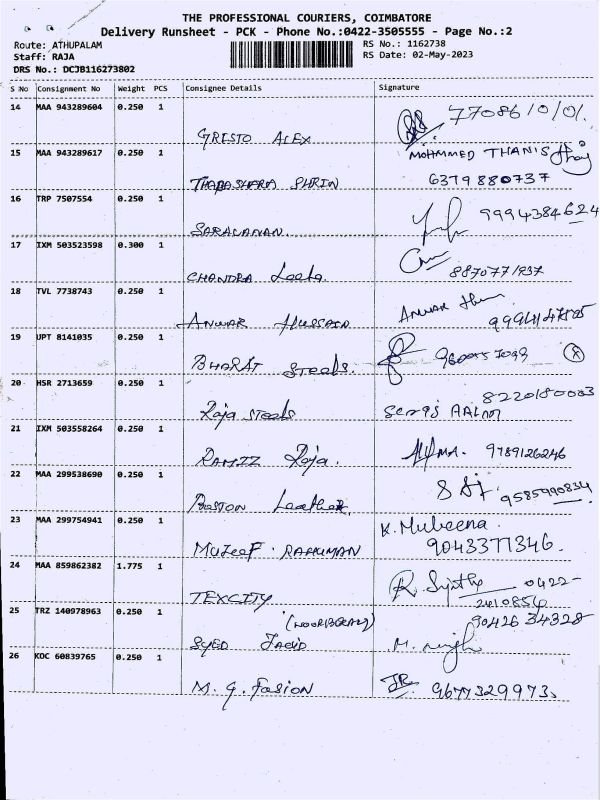 THE PROFESSIONAL COURIERS, COIMBATORE
Delivery Runsheet - PCK - Phone No.:0422-3505555 - Page No.:2
Route: ATHUPALAM
RS No.: 1162738
Staff: RAJA
RS Date: 02-May-2023
DRS No.: DCJB116273802
S No Consignment No Weight PCS Consignee Details Signature
14 MAA 943289604 0.250 1
GRISTO ALEX
15 MAA 943289617 0.250 1 MOHMMED THANIS
SHRIN 6379880737
16 TRP 7507554 0.250 1
SARAVANAN 9994384624
17 IXM 503523598 0.300 1
CHANDRA Leela.
18 TVL 7738743 0.250 1
ANWAR HUSSAIN ANWAR
19 UPT 8141035 0.250 1
BHARAT Steels.
20 HSR 2713659 0.250 1 8220180003
Raja steels
21 IXM 503558264 0.250 1
RAMIZ Raja. 9789126246
22 MAA 299538690 0.250 1
BOSTON Leather 9585990834
23 MAA 299754941 0.250 1 K. Mubeena.
RAHUMAN 9043377346.
24 MAA 859862382 1.775 1 0422-
TEXCITY 2410856
25 TRZ 140978963 0.250 1 90426 34328
SYED
26 KOC 60839765 0.250 1
M. G. Fasion JR 9677329973.